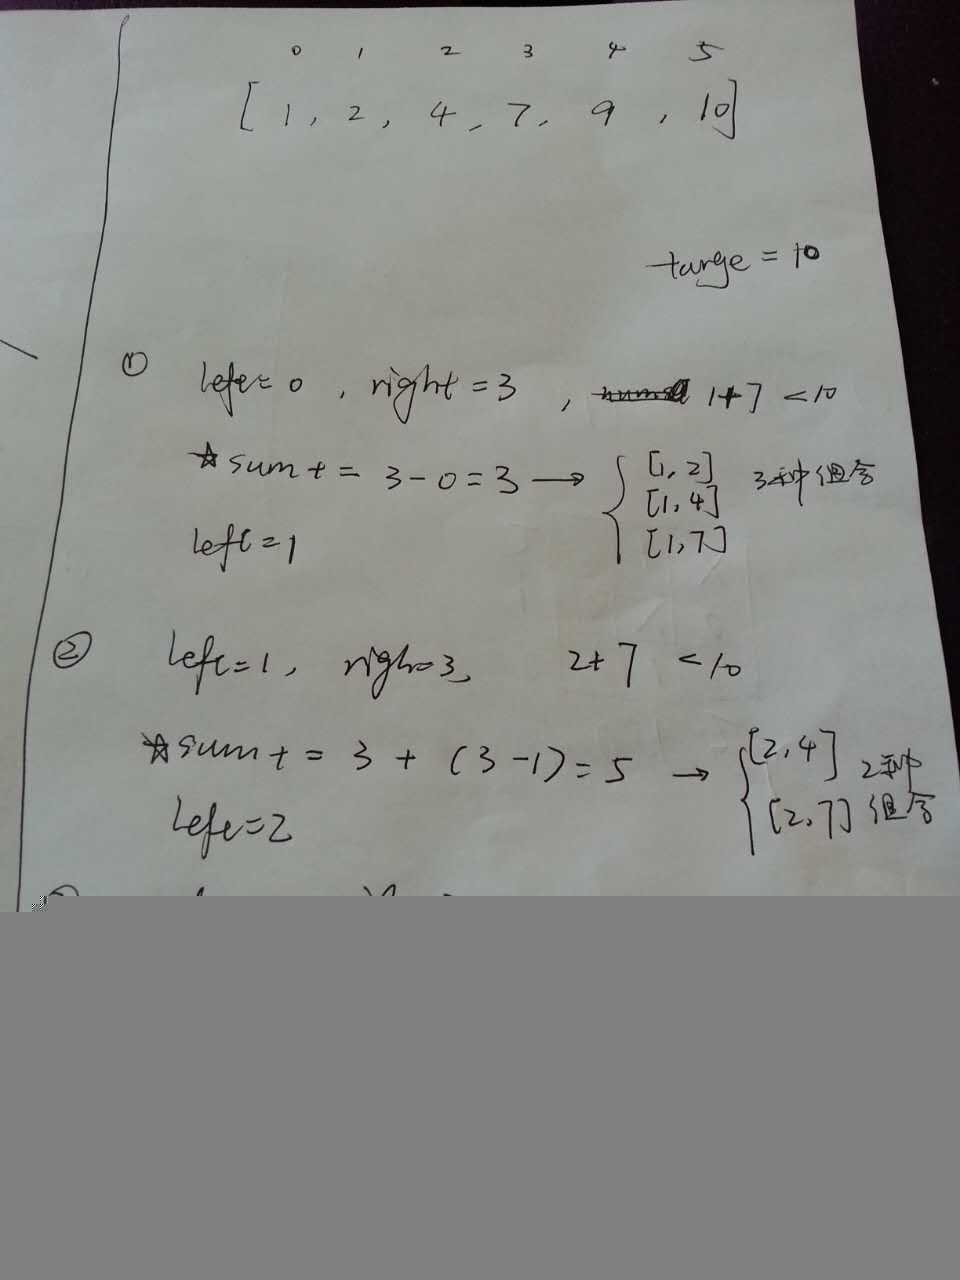 0 1 2 3 4 5
[ 1, 2, 4, 7, 9, 10]
targe = 10
① left=0, right=3, 1+7 <10
☆sum+= 3-0=3 → { [1,2]
[1,4] 3种组合
[1,7]
left=1
② left=1, righ=3, 2+7 <10
☆sum+= 3+(3-1)=5 → { [2,4] 2种
[2,7] 组合
left=2